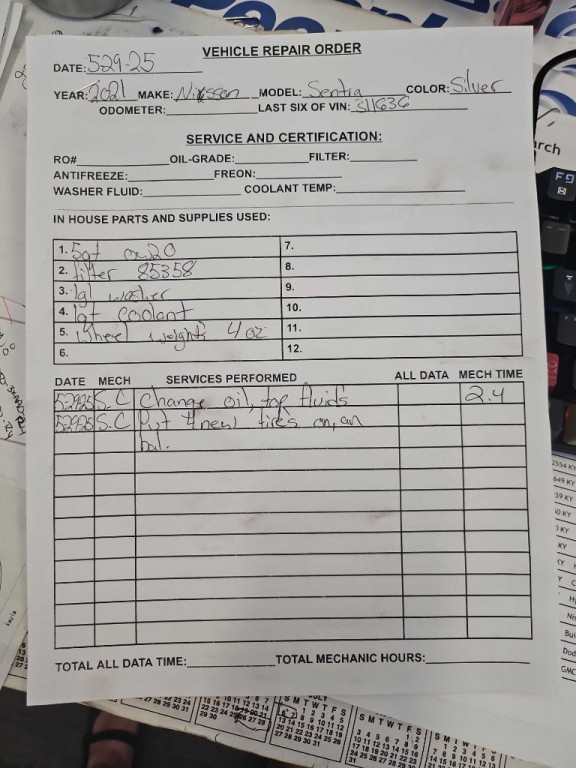 VEHICLE REPAIR ORDER
DATE: 5-29-25
YEAR: 2021 MAKE: Nissan MODEL: Sentra COLOR: Silver
ODOMETER: LAST SIX OF VIN: 311636
SERVICE AND CERTIFICATION:
RO# OIL-GRADE: FILTER:
ANTIFREEZE: FREON:
WASHER FLUID: COOLANT TEMP:
IN HOUSE PARTS AND SUPPLIES USED:
1. 5qt 0w20 7.
2. filter 85358 8.
3. 1gl washer 9.
4. 1qt coolant 10.
5. wheel weights 4 oz 11.
6. 12.
DATE MECH SERVICES PERFORMED ALL DATA MECH TIME
52925 S.C Change oil, top fluids 2.4
52925 S.C Put 4 new tires on, an
bal.
TOTAL ALL DATA TIME: TOTAL MECHANIC HOURS:
F9
rch